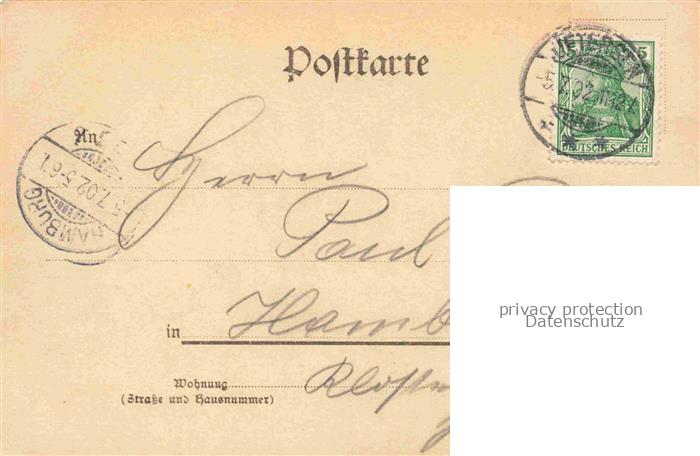 Postkarte
5
UETERSEN
DEUTSCHES REICH
An
HAMBURG
7.02.5-6
Herrn
Paul
privacy protection
Datenschutz
in Hamb
Wohnung
(Straße und Hausnummer)